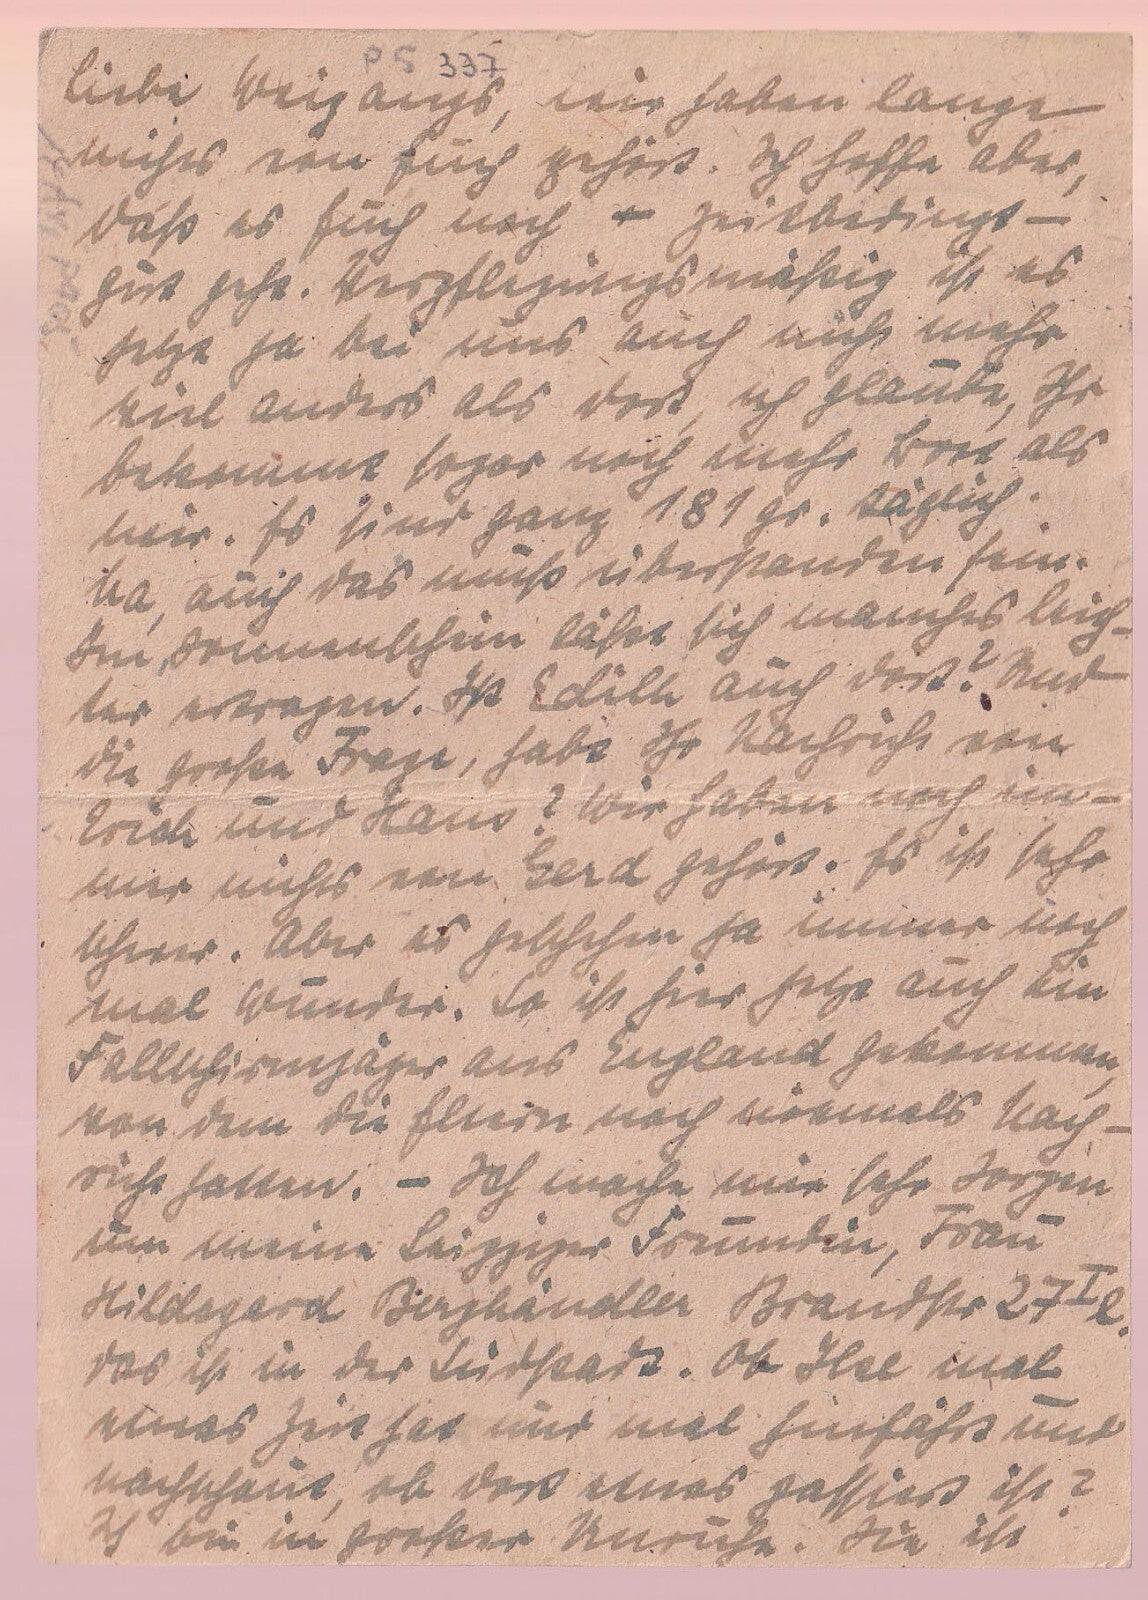 PS 337
Liebe Weigangs, wir haben lange
nichts von Euch gehört. Ich hoffe aber,
daß es Euch noch – zeitbedingt –
gut geht. Verpflegungsmäßig ist es
jetzt ja bei uns auch nicht mehr
viel anders als dort, ich glaube, Ihr
bekommt sogar noch mehr Brot als
wir. Es sind ganz 181 gr. täglich.
Na, auch das muß überstanden sein.
Im Sonnenschein läßt sich manches leich-
ter ertragen. Ist Edith auch dort? Und
die große Frage, habt Ihr Nachricht von
Erich und Hans? Wir haben noch im-
mer nichts von Gerd gehört. Es ist sehr
schwer. Aber es geschehen ja immer noch
mal Wunder. So ist hier jetzt auch ein
Fallschirmjäger aus England gekommen,
von dem die Eltern noch niemals Nach-
richt hatten. – Ich mache mir sehr Sorgen
um meine Leipziger Freundin, Frau
Hildegard Berghändler Brandstr 27 I l.
das ist in der Südstadt. Ob Ilse mal
etwas Zeit hat und mal hinfährt und
nachschaut, ob dort etwas passiert ist?
Ich bin in großer Unruhe. Sie ist